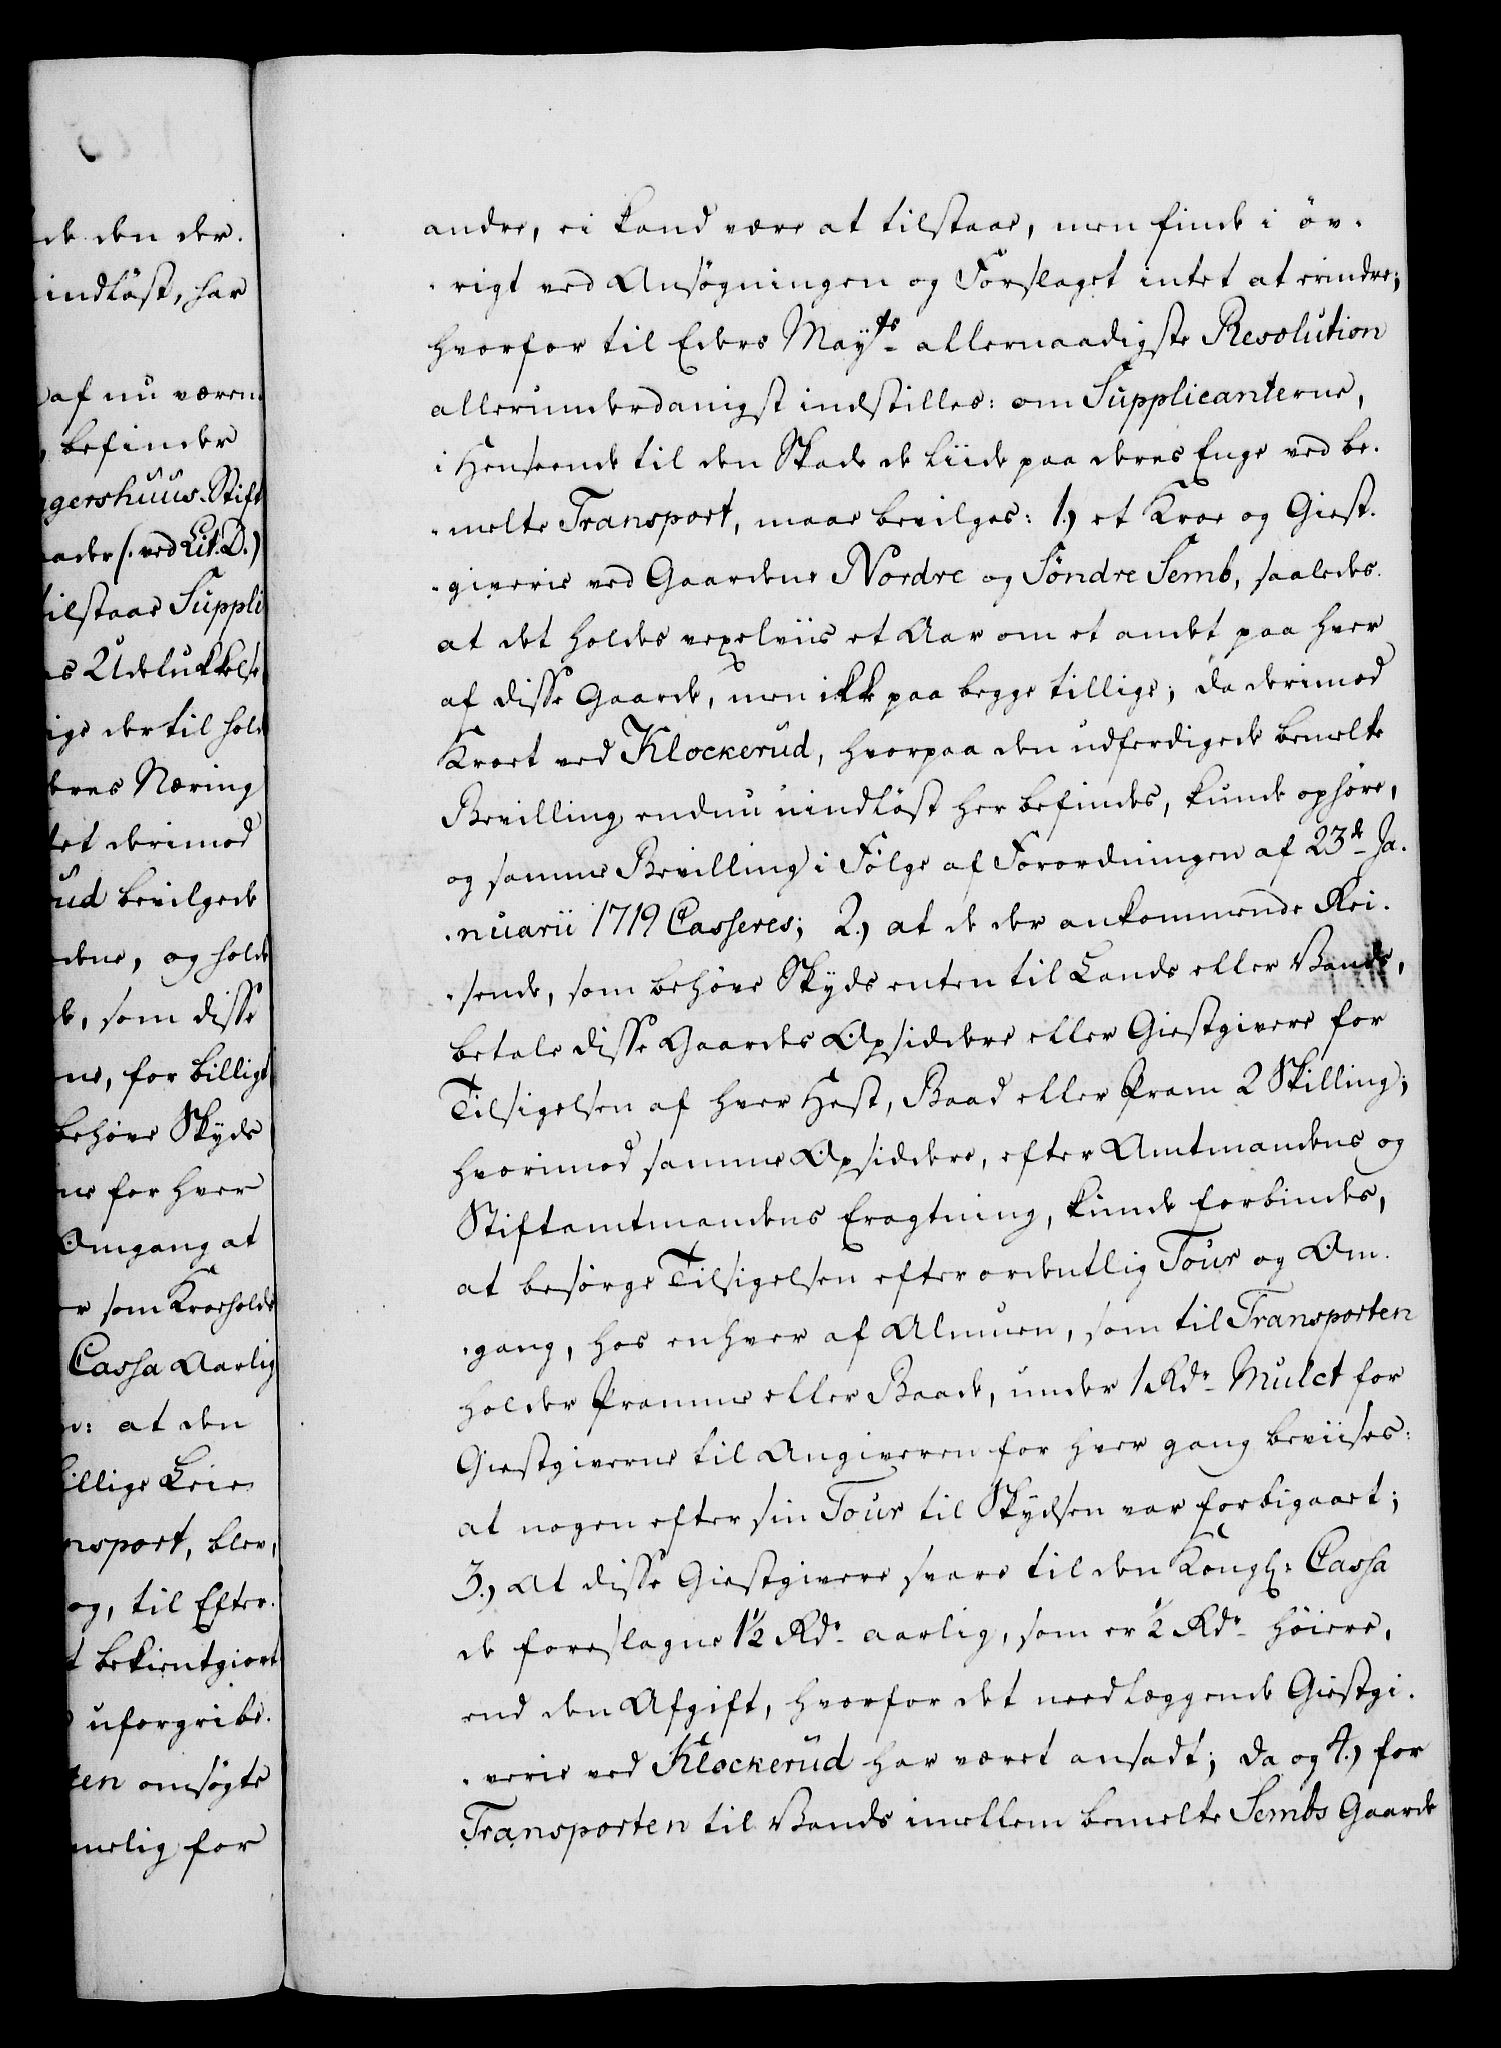 de den der.
indløst, har
af nu væren
befinder
gershuus. Stift
ader (: ved Lit. D.)
tilstaae Suppli
es Udelukkelse
ige der til hold
deres Næring
tet derimod
ud bevilgede
dene, og holde
de, som disse
ne, for billigt
behøve Skyds
ne for hver
Omgang at
er som Kroeholde
Cassa Aarlig
n: at den
billige Leie
nsport, blev,
og, til Efter.
t bekientgiort
uforgribe.
ten ansøgte
melig for
andre, ei kand være at tilstaae, men finde i øv.
.rigt ved Ansøgningen og Forslaget intet at erindre;
hvorfor til Eders Mayts allernaadigste Resolution
allerunderdanigst indstilles: om Supplicanterne,
i Henseende til den Skade de liide paa deres Enge ved be.
.melte Transport, maae bevilges: 1.) et Kroe og Giest.
.giverie ved Gaardene Nordre og Søndre Semb, saaledes
at det holdes vexelviis et Aar om et andet paa hver
af disse Gaarde, men ikke paa begge tillige; da derimod
Kroet ved Klockerud, hvorpaa den udferdigede bemelte
Bevilling endnu uindløst her befindes, kunde ophøre,
og samme Bevilling i Følge af Forordningen af 23de Ja.
.nuarii 1719 Casseres; 2.) at de der ankommende Rei.
.sende, som behøve Skyds enten til Lands eller Vands,
betale disse Gaardes Opsiddere eller Giestgivere for
Tilsigelsen af hver Hest, Baad eller Pram 2 Skilling;
hvorimod samme Opsiddere, efter Amtmandens og
Stiftamtmandens Eragtning, kunde forbindes,
at besørge Tilsigelsen efter ordentlig Tour og Om.
.gang, hos enhver af Almuen, som til Transporten
holder Pramme eller Baade, under 1 Rdr Mulct for
Giestgiverne til Angiveren for hver gang beviises:
at nogen efter sin Tour til Skydsen var forbigaaet;
3.) At disse Giestgivere svare til den Kongl: Cassa
de foreslagne 1½ Rdr aarlig, som er ½ Rdr høiere,
end den Afgift, hvorfor det nedlæggende Giestgi.
.verie ved Klockerud har været ansadt; da og 4.) for
Transporten til Vands imellem bemelte Sembs Gaarde